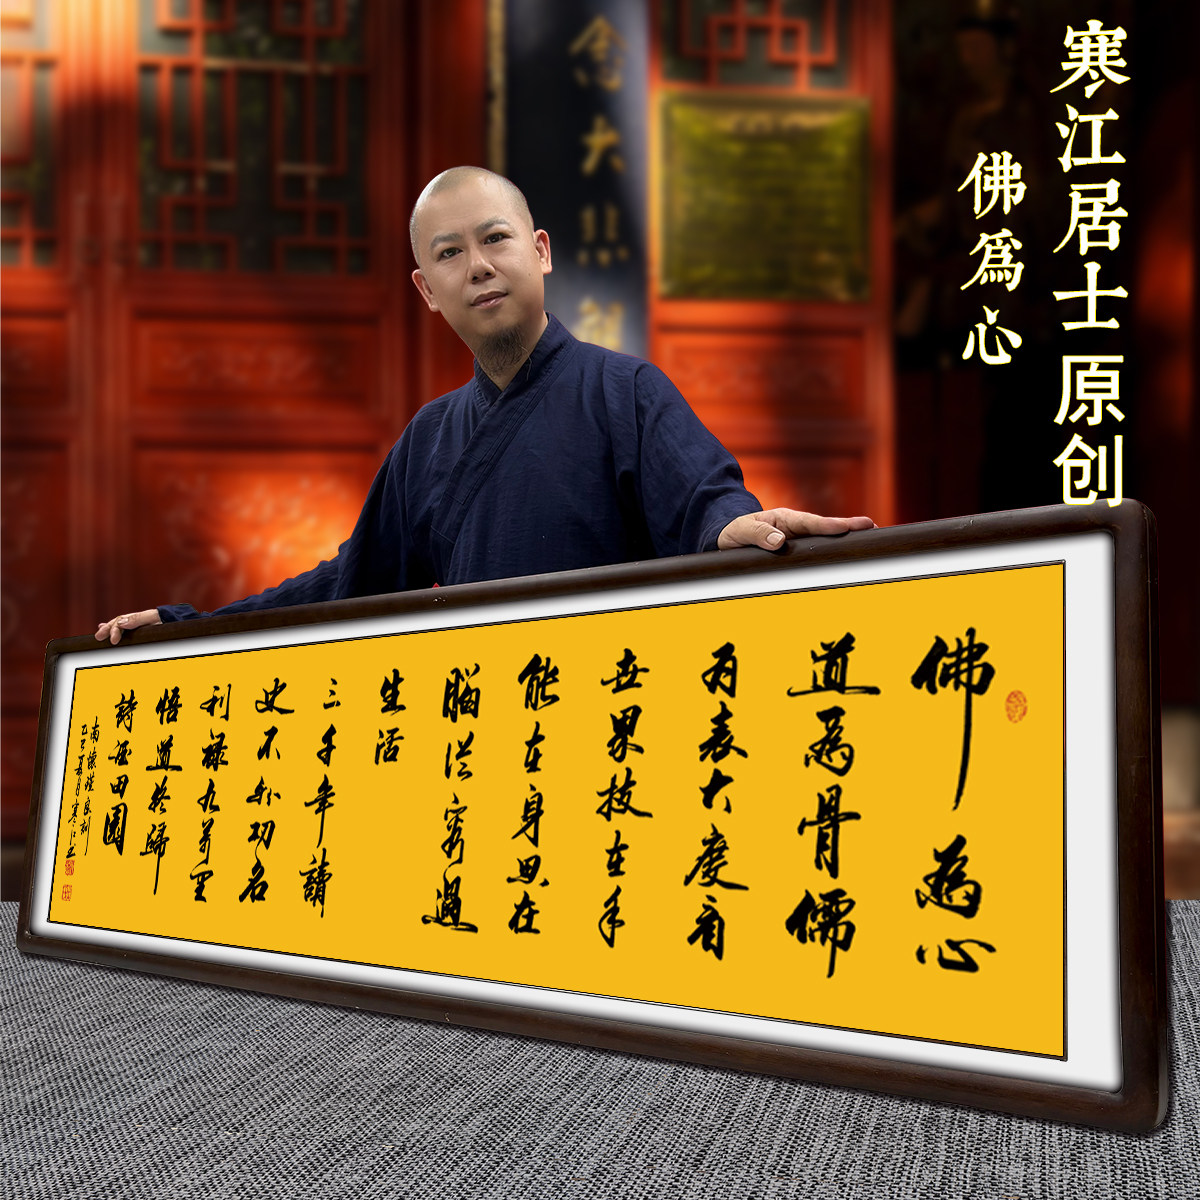 寒江居士 原创
佛為心
念大悲
佛為心
道為骨儒
为表大度看
世界技在手
能在身思在
腦從容過
生活
三千年讀
史不外功名
利祿九萬里
悟道終歸
詩酒田園
南懷瑾
夏月寒江